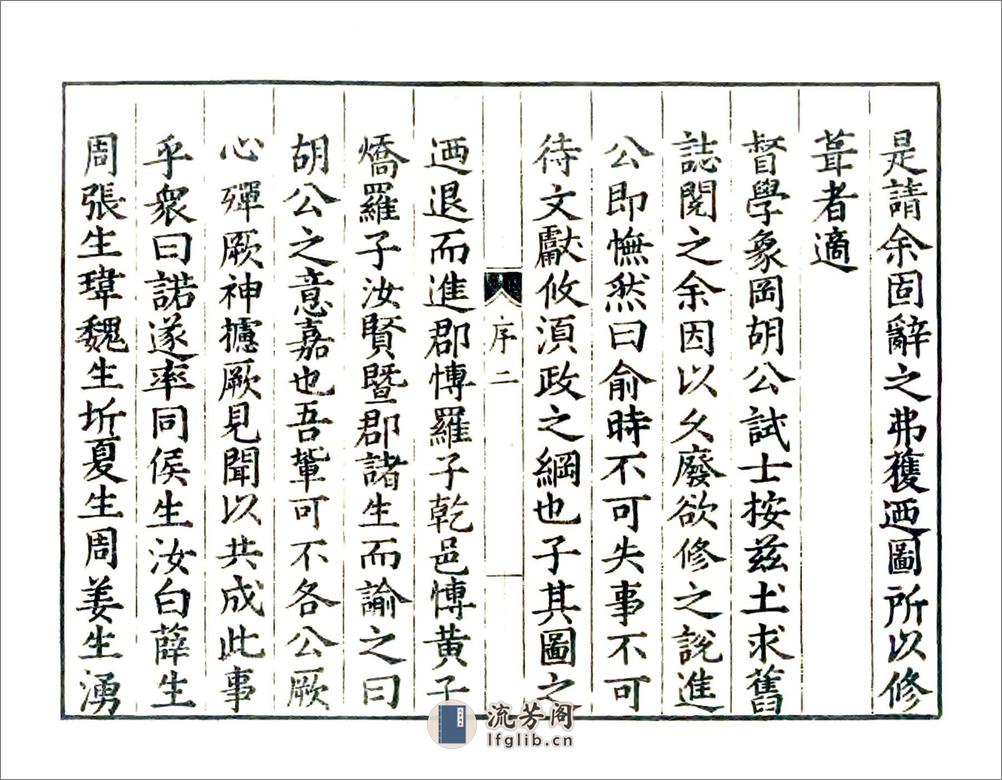 是請余固辭之弗獲迺圖所以修
葺者適
督學象岡胡公試士按茲土求舊
誌閱之余因以久廢欲修之說進
公即憮然曰俞時不可失事不可
待文獻攸湏政之綱也子其圖之
序二
迺退而進郡慱羅子乾邑慱黃子
燆羅子汝賢暨郡諸生而諭之曰
胡公之意嘉也吾軰可不各公厥
心殫厥神攄厥見聞以共成此事
乎衆曰諾遂率同侯生汝白薛生
周張生瑋魏生圻夏生周姜生湧
流芳阁
lfglib.cn